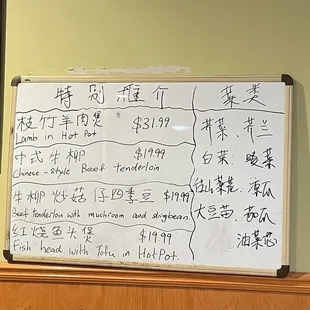 特别推介
枝竹羊肉煲 $31.99
Lamb in Hot Pot
中式牛柳 $19.99
Chinese-Style Beef tenderloin
牛柳炒菇仔四季豆 $19.99
Beef Tenderloin with mushroom and stringbean
红烧鱼头煲 $19.99
Fish head with Tofu in HotPot.
菜类
芥兰
白菜
凉瓜
大豆苗. 茄瓜
油菜芯